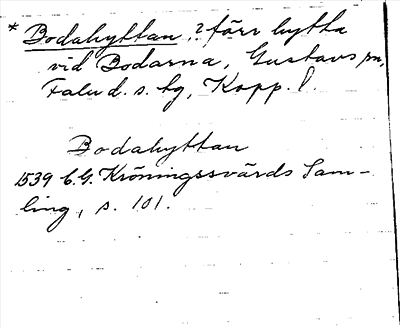 * Bodahyttan, ? förr hytta
vid Bodarna, Gustavs sn,
Falu d. s. bg, Kopp. l.
Bodahyttan
1539 C.G. Kröningssvärds Sam-
ling, s. 101.